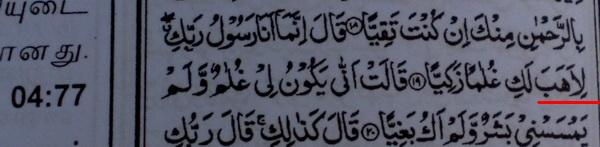 யுடை
ானது.
04:77
بِالرَّحْمٰنِ مِنْكَ اِنْ كُنْتَ تَقِيًّا ۝١٨ قَالَ اِنَّمَاۤ اَنَا رَسُوْلُ رَبِّكِ ۖ
لِاَهَبَ لَكِ غُلٰمًا زَكِيًّا ۝١٩ قَالَتْ اَنّٰى يَكُوْنُ لِيْ غُلٰمٌ وَّلَمْ
يَمْسَسْنِيْ بَشَرٌ وَّلَمْ اَكُ بَغِيًّا ۝٢٠ قَالَ كَذٰلِكِ ۚ قَالَ رَبُّكِ